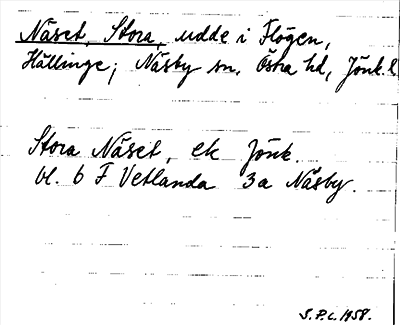 Näset, Stora, udde i Flögen,
Hällinge; Näsby sn, Östra hd, Jönk. l
Stora Näset, ek Jönk.
bl. 6 F Vetlanda 3a Näsby.
S.P.L. 1958.